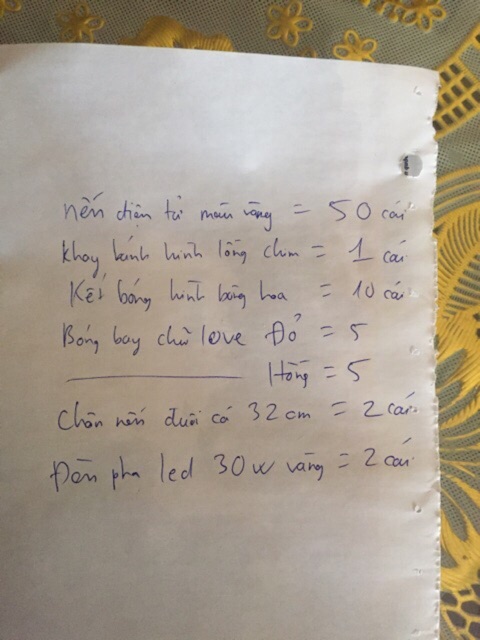 nến điện tử màu vàng = 50 cái
Khay bánh hình lồng chim = 1 cái
Kết bóng hình bông hoa = 10 cái
Bóng bay chữ love Đỏ = 5
Hồng = 5
Chân nến đuôi cá 32 cm = 2 cái
Đèn pha led 30w vàng = 2 cái